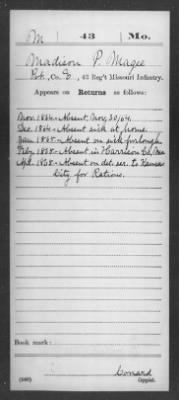 M 43 Mo.
Madison P. Magee
Pvt., Co. E, 43 Reg't Missouri Infantry.
Appears on Returns as follows:
Nov. 1864-Absent, Nov. 30/64.
Dec 1864-Absent sick at home.
Jan 1865-Absent on sick furlough.
Feby 1865-Absent in Harrison Co, Mo.
Apl. 1865-Absent on det. ser. to Kansas
City for Rations.
Book mark:
Conard
(546)
Copyist.